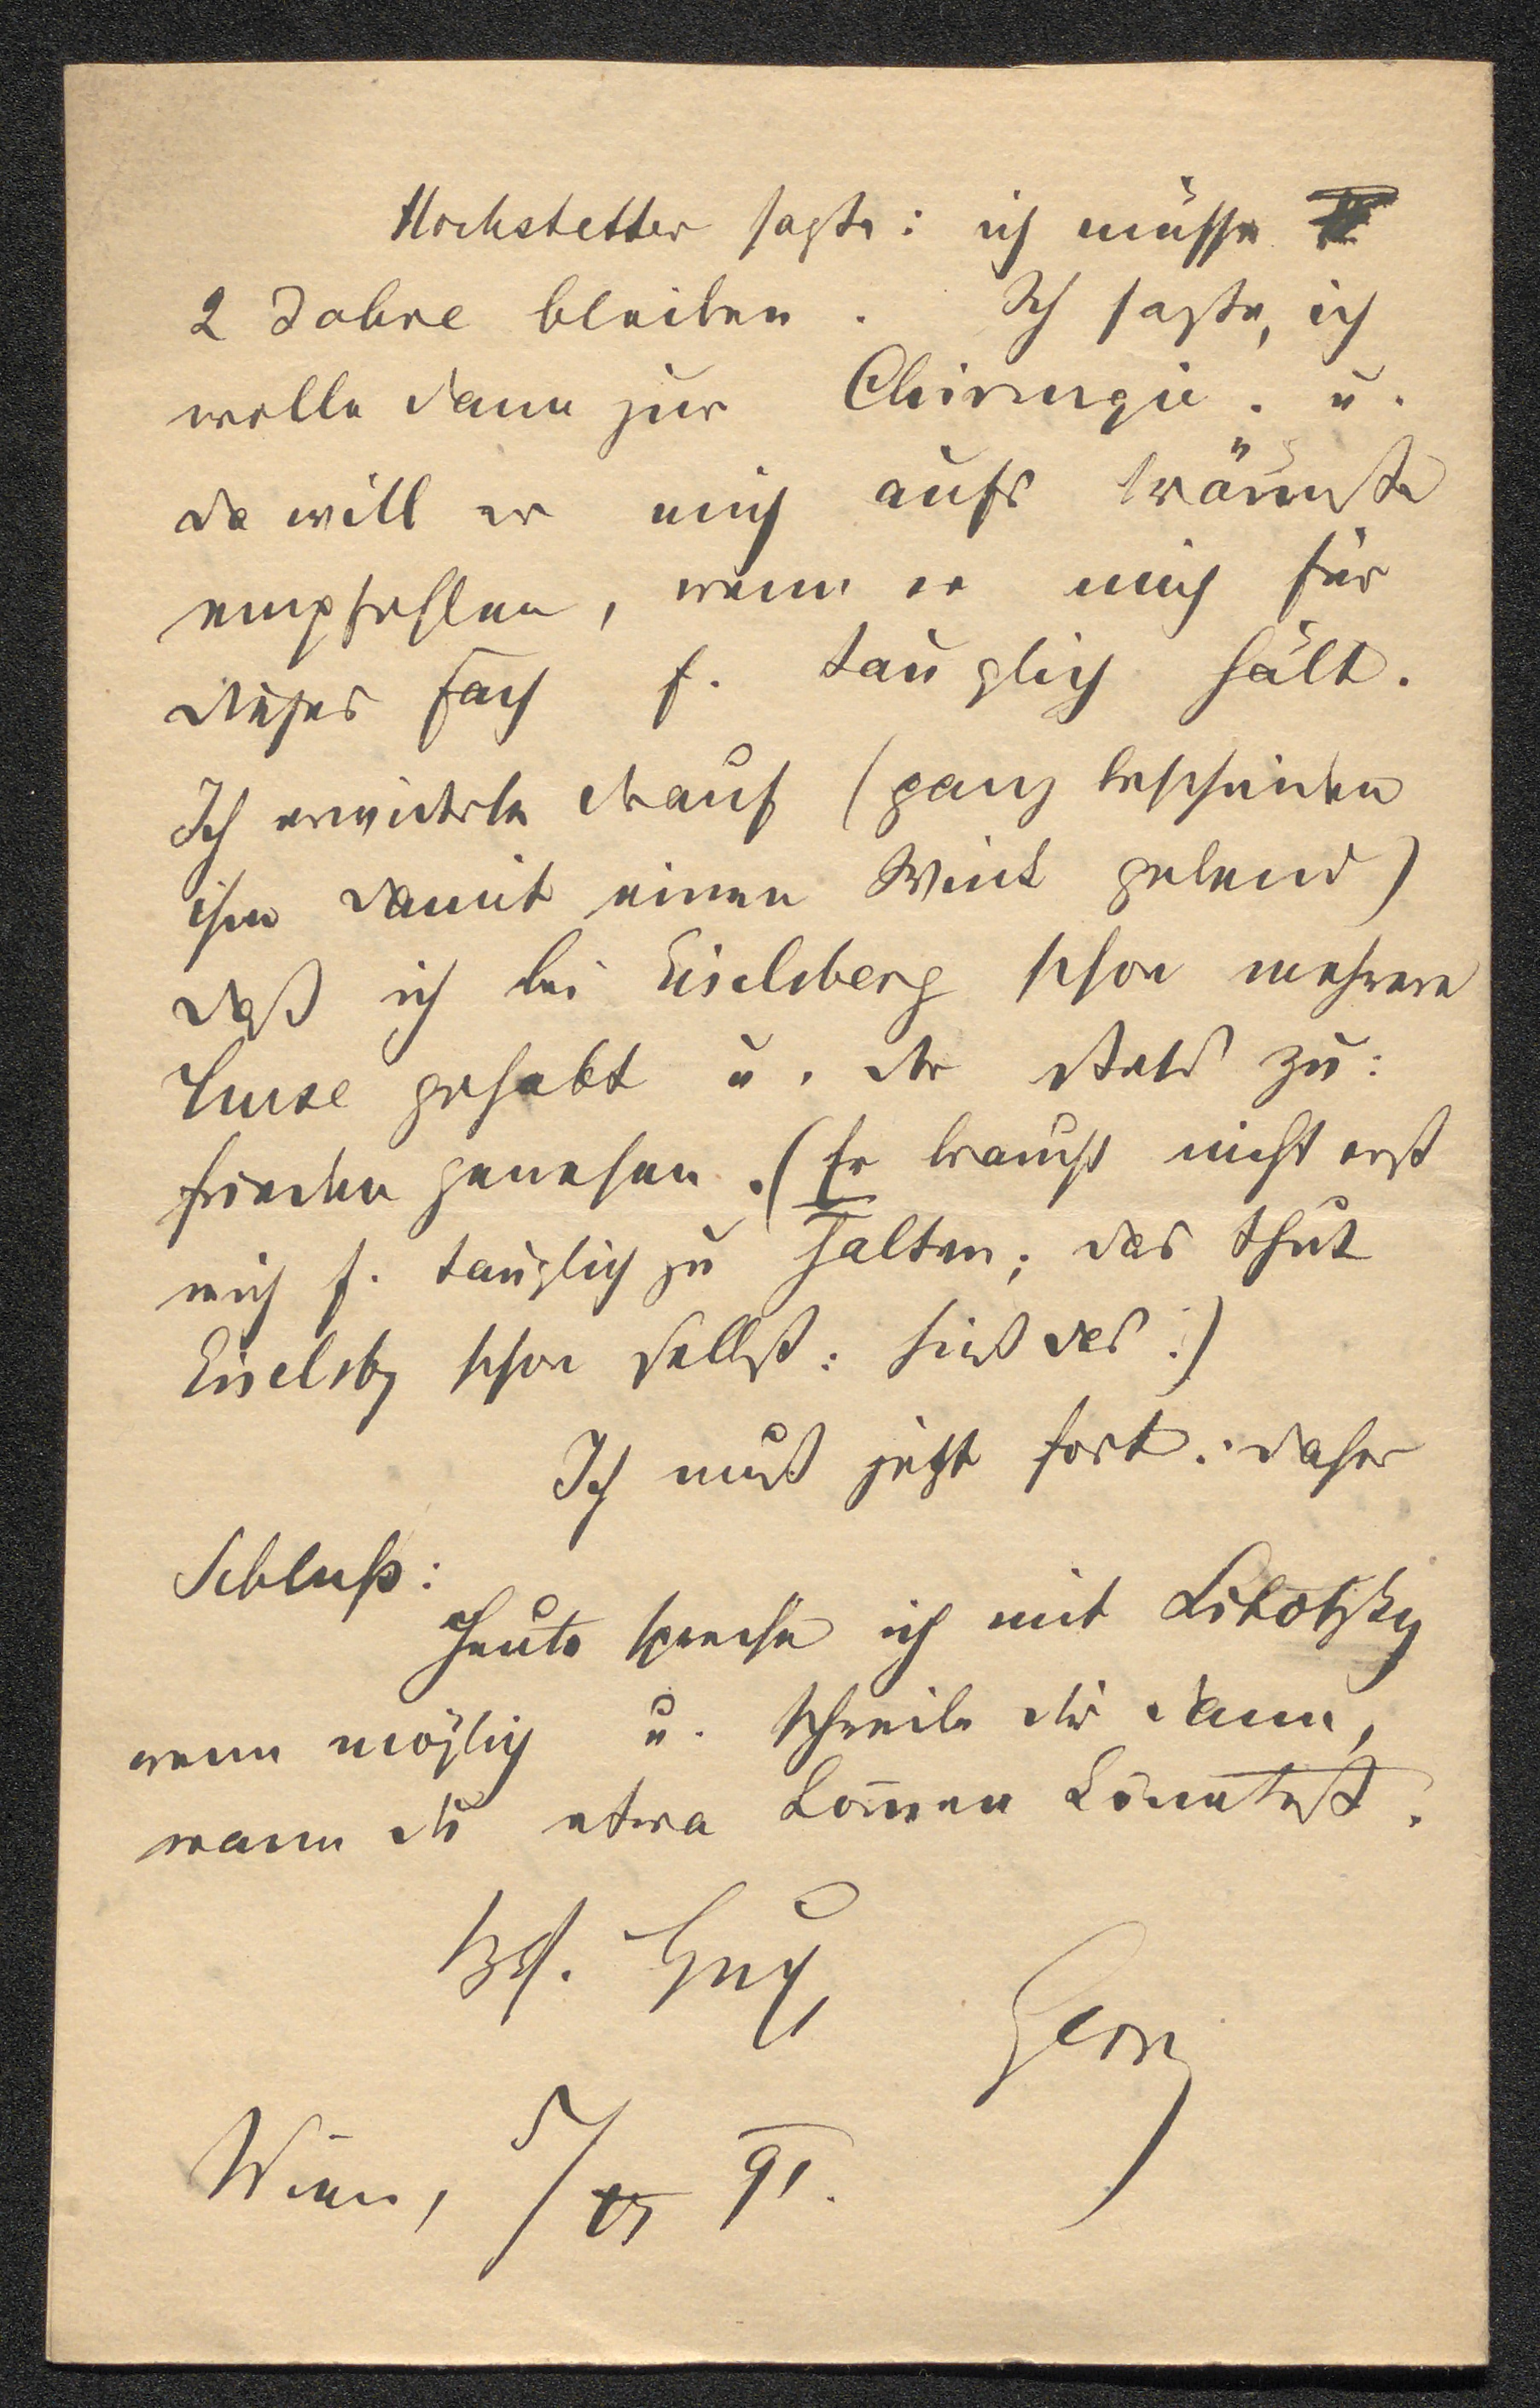 Hochstetter sagte: ich müsse
2 Jahre bleiben. Ich sagte, ich
wolle dann zur Chirurgie. u.
da will er mich aufs wärmste
empfehlen, wenn er mich für
dieses Fach f. tauglich hält.
Ich erwiderte drauf (ganz bescheiden
ihm damit einen Wink gebend)
daß ich bei Eiselsberg schon mehrere
Curse gehabt u. der stets zu:
frieden gewesen. (Er braucht nicht erst
mich f. tauglich zu halten; das thut
Eiselsbg schon selbst: hieß das:)
Ich muß jetzt fort. daher
Schluß:
Heute spreche ich mit Libotzky
wenn möglich u. schreibe dir dann,
wann du etwa kom̄en könntest.
hzl. Gruß
Georg
Wien, 5/ 91.